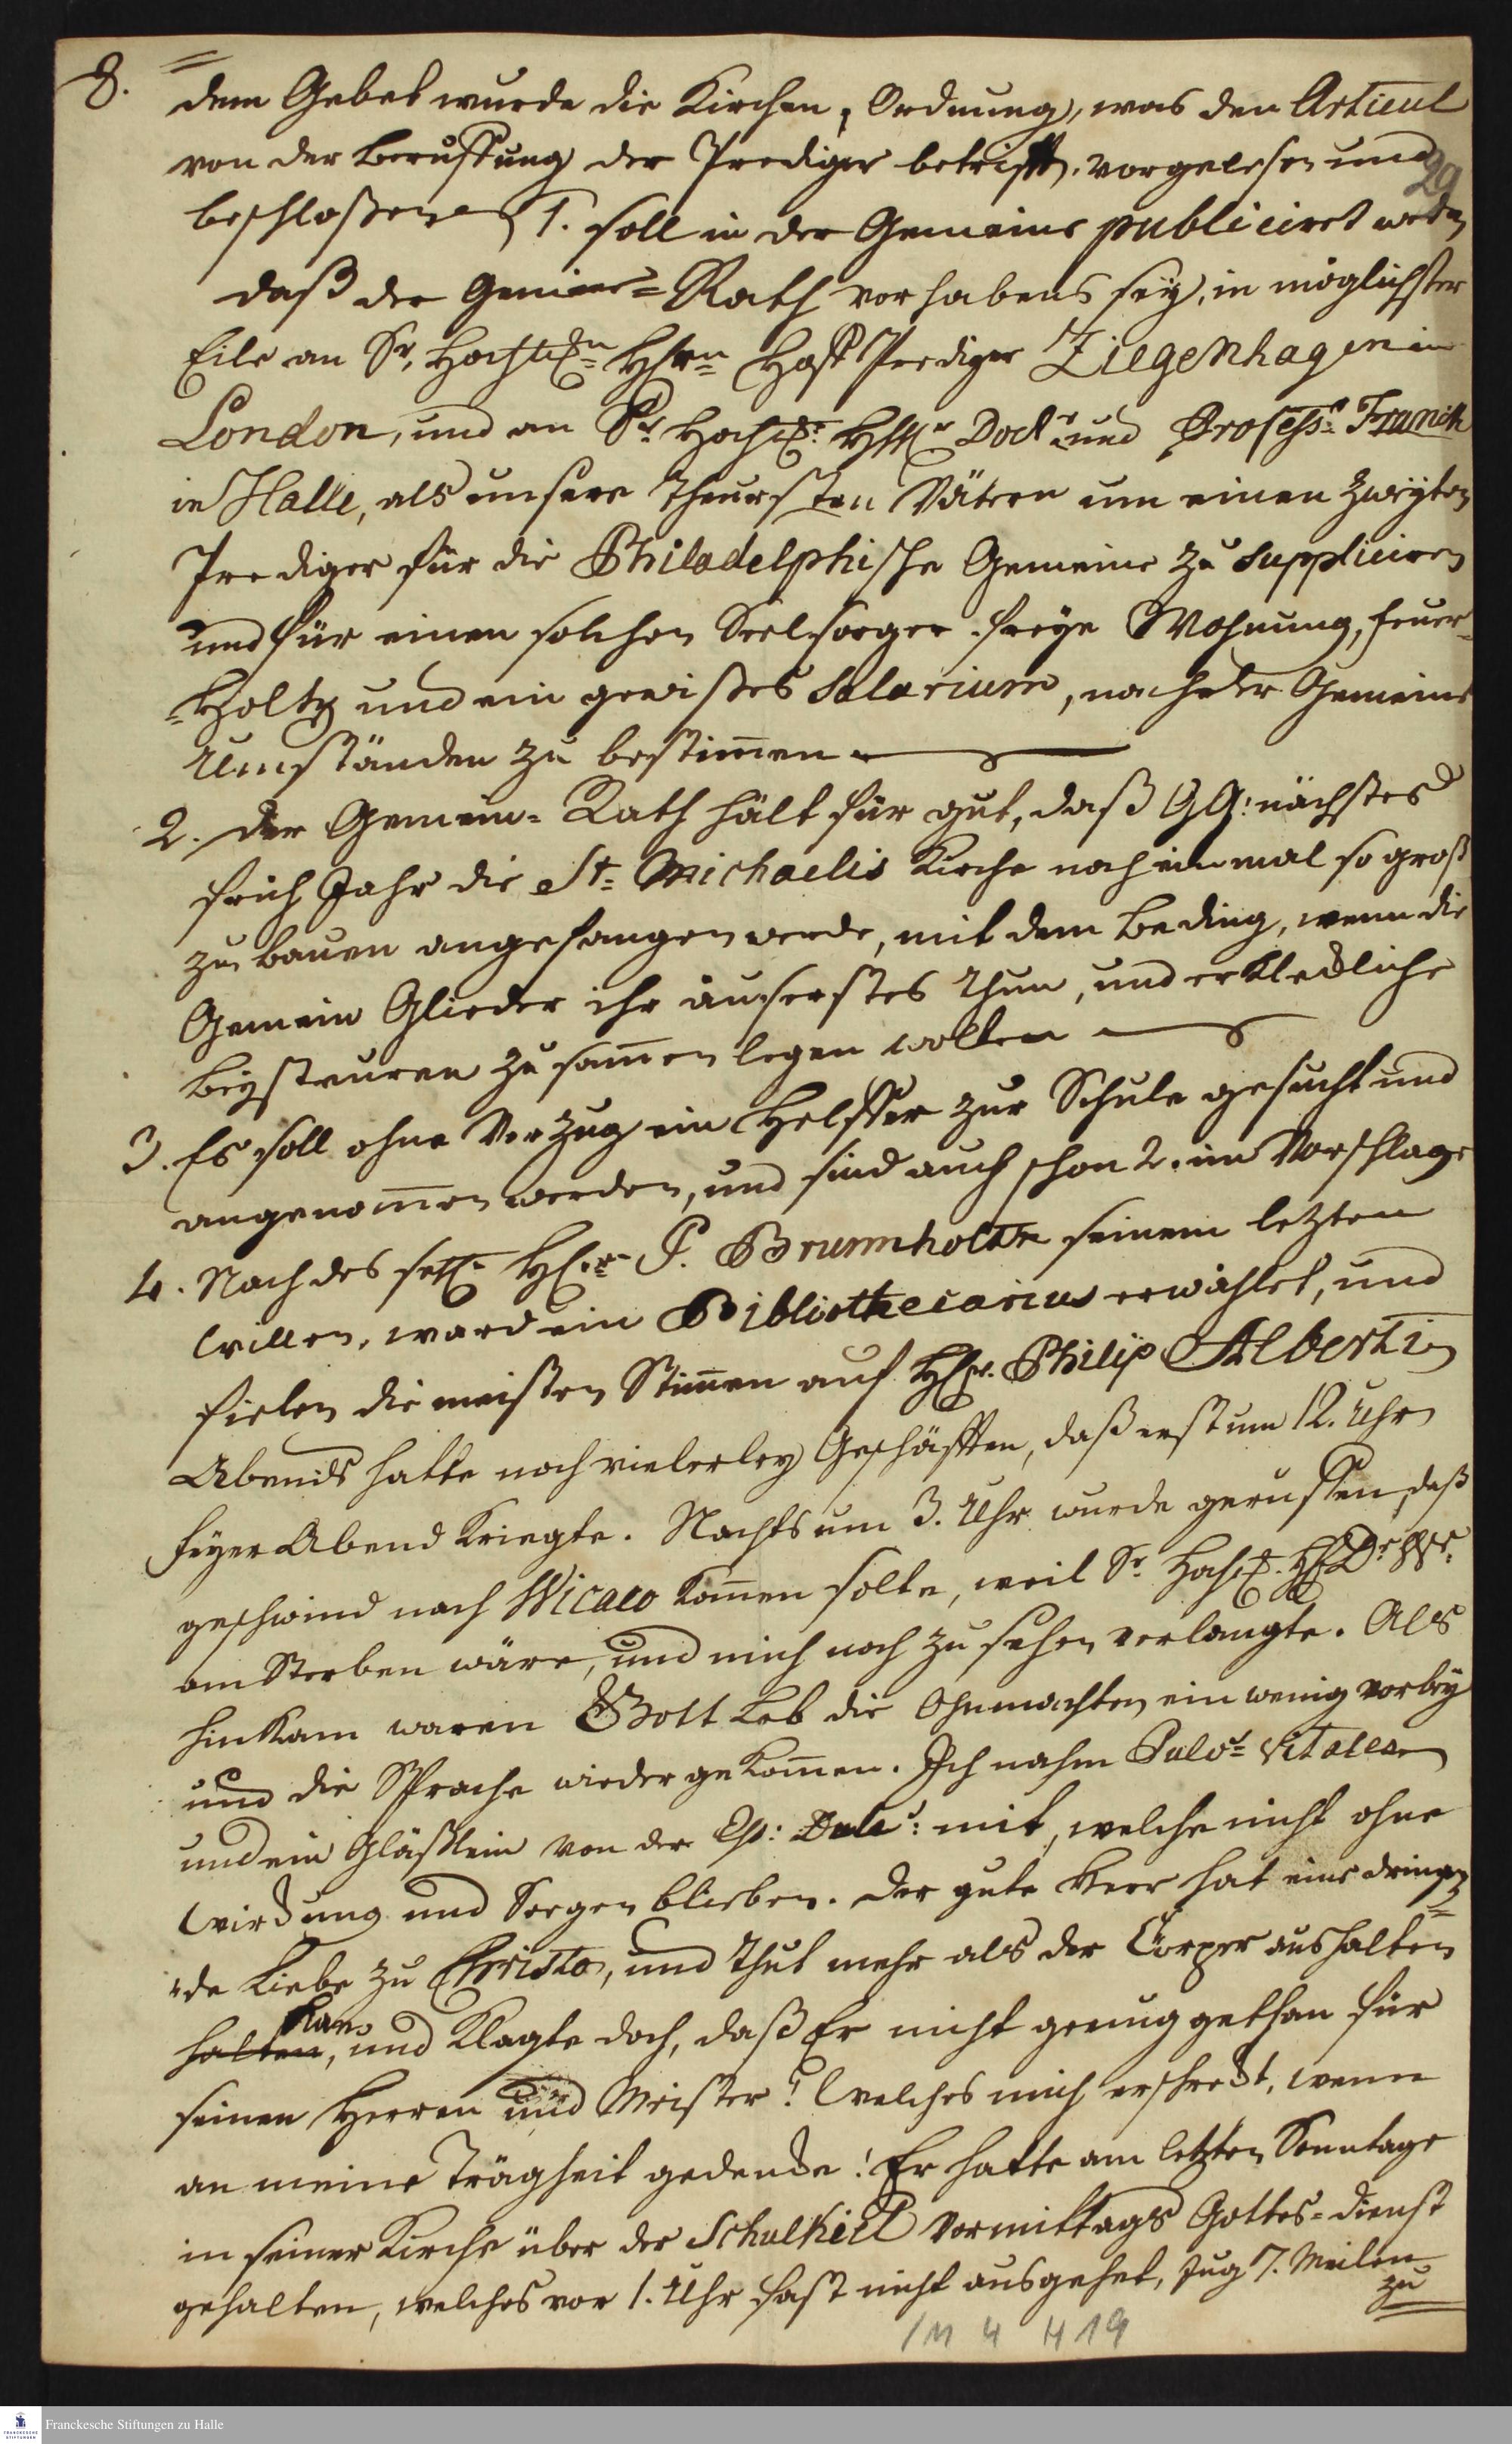 8.
dem Gebet wurde die Kirchen-Ordnung, was den Articul
von der Beruffung der Prediger betrifft, vorgelesen und
29
beschloßen 1. soll in der Gemeine publiciret werden,
daß der Gemeine-Rath vorhabens sey, in möglichster
Eile an Sr. Hochw. Herrn Hoff Prediger Ziegenhagen in
London, und an Sr. Hochw. Herr Doct. und Profess. Franck
in Halle, als unsere theursten Vätern um einen zweyten
Prediger für die Philadelphische Gemeine zu suppliciren
und für einen solchen Seelsorger freye Wohnung, Feuer-
-Holtz und ein gewißes Salarium, nach der Gemeine
Umständen zu bestim̄en
2. der Gemein-Rath hält für gut, daß GG: nächstes
früh Jahr die St. Michaelis Kirche noch einmal so groß
zu bauen angefangen werde, mit dem Beding, wenn die
Gemein Glieder ihr äuserstes thun, und erkleckliche
Beysteuren zusam̄en legen wollen
3. Es soll ohne Verzug ein Helffer zur Schule gesucht und
angenom̄en werden, und sind auch schon 2. im Vorschlage
4. Nach des sel. Herrn P. Brunnholtz seinem letzten
Willen, ward ein Bibliothecarius erwählet, und
fielen die meisten Stim̄en auf Hr. Philip Alberti
Abends hatte noch vielerley Geschäfften, daß erst um 12. Uhr
Feyer Abend kriegte. Nachts um 3. Uhr wurde geruffen, daß
geschwind nach Wicaco kom̄en solte, weil Sr. Hochw. H. Dr.
am Sterben wäre, und mich noch zu sehen verlangte. Als
hinkam waren Gott Lob die Ohnmachten ein wenig vorbey
und die Sprache wieder gekom̄en. Ich nahm Pulv. vitales
und ein Gläßlein von der Ess: Dulc: mit, welche nicht ohne
Wirckung und Seegen blieben. der gute Herr hat eine dringen-
-de Liebe zu Christo, und thut mehr als der Cörper aushalten
halten kan, und klagte doch, daß Er nicht genug gethan für
seinen Herren und Meister! Welches mich erschreckt, wenn
an meine Trägheit gedencke! Er hatte am letzten Sonntage
in seiner Kirche über der Schulkiel Vormittags Gottes-dienst
gehalten, welches vor 1. Uhr fast nicht ausgehet, zug 7. Meilen
zu
1M 4 H 19
Franckesche Stiftungen zu Halle